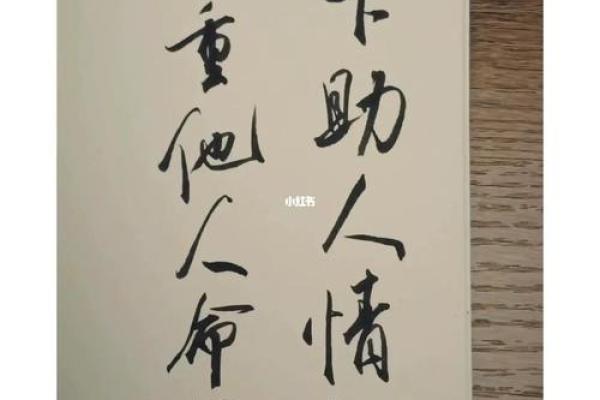 下助人情
重他人命
小红书